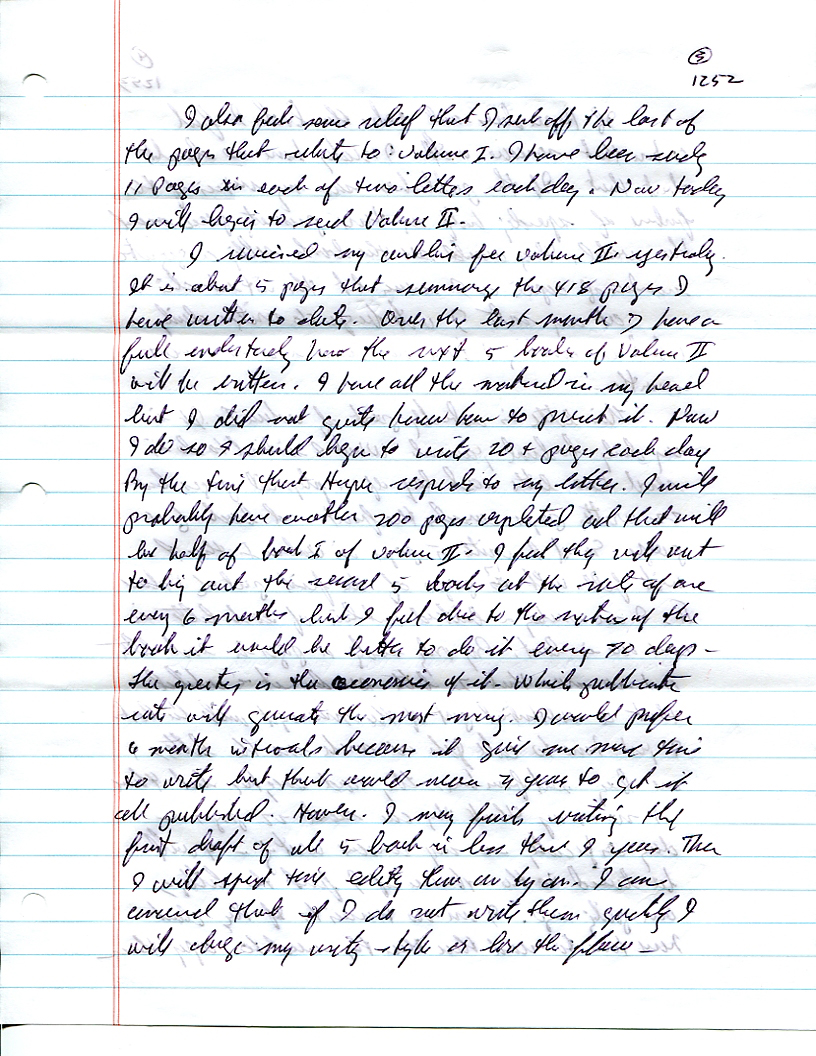 ③
1252
I also feel some relief that I sent off the last of
the pages that relate to Volume I. I have been sending
11 Pages in each of two letters each day. Now today
I will begin to send Volume II.
I received my outline for Volume II yesterday.
It is about 5 pages that summarize the 418 pages I
have written to date. Over the last month I have a
full understanding how the next 5 books of Volume II
will be written. I have all the material in my head
but I did not quite know how to present it. Now
I do so I should begin to write 20+ pages each day
By the time that Harper responds to my letter. I will
probably have another 200 pages completed and that will
be half of book I of Volume II. I feel they will want
to bring out the second 5 books at the rate of one
every 6 months but I feel due to the nature of the
book it would be better to do it every 70 days -
the question is the economics of it. Which publication
rate will generate the most money. I would prefer
6 month intervals because it gives me more time
to write but that would mean 2 years to get it
all published. However. I may finish writing the
first draft of all 5 books in less than 2 years. Then
I will spend time editing them one by one. I am
concerned that if I do not write them quickly I
will change my writing style or lose the flow -